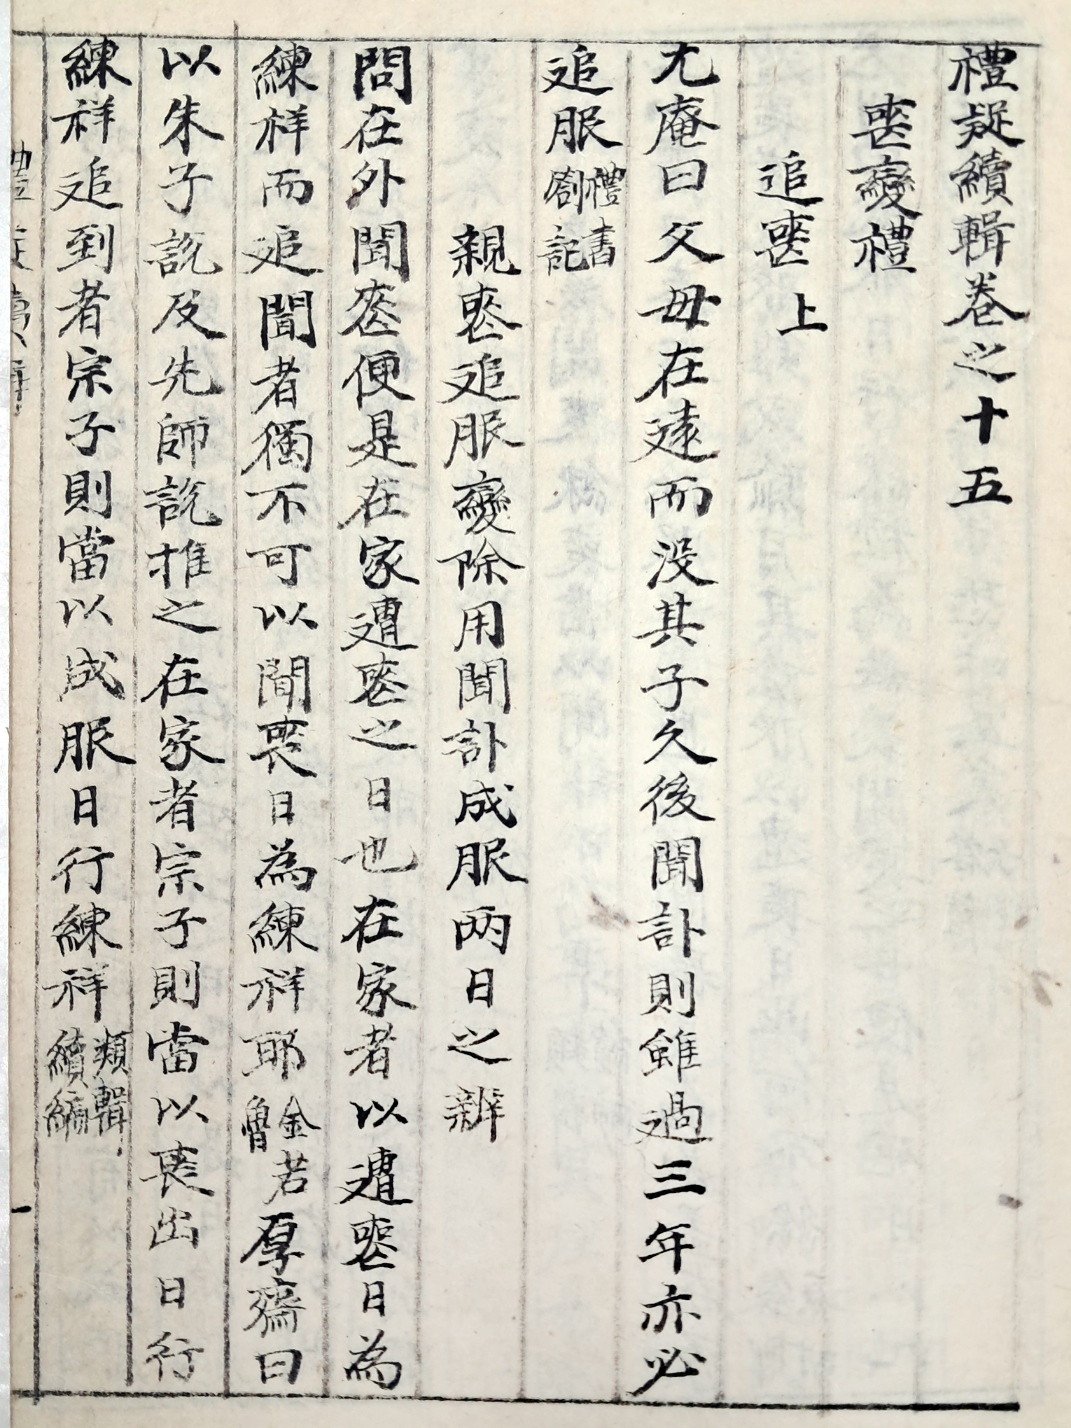 禮疑續輯卷之十五
喪變禮
追喪上
尤庵曰父母在遠而没其子久後聞訃則雖過三年亦必
追服禮書劄記
親喪追服變除用聞訃成服两日之辨
問在外聞喪便是在家遭喪之日也在家者以遭喪日為
練祥而追聞者獨不可以聞喪日為練祥耶金若魯厚齋曰
以朱子說及先師說推之在家者宗子則當以喪出日行
練祥追到者宗子則當以成服日行練祥類輯續編